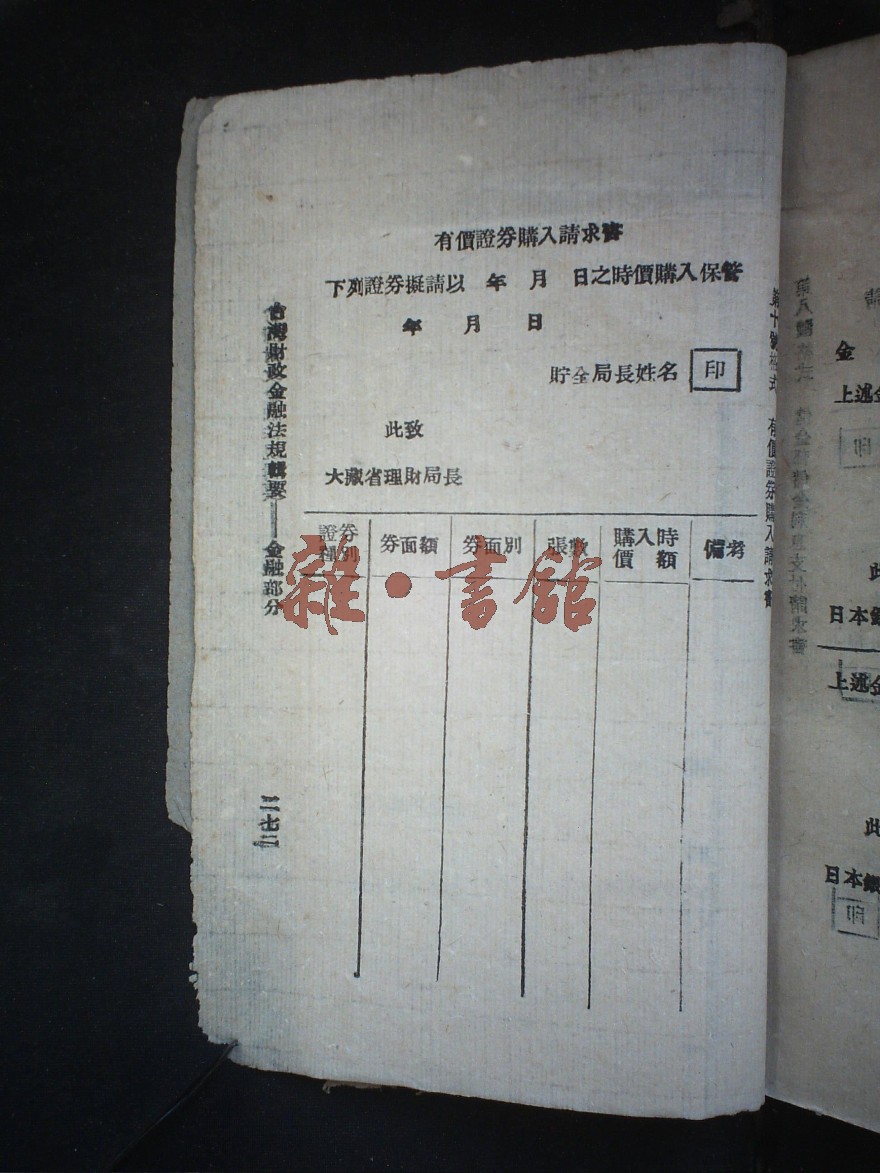 第十號格式　有價證券購入請求書
有價證券購入請求書
下列證券擬請以　年　月　日之時價購入保管
年　月　日
貯金局長姓名　印
此致
大藏省理財局長
證券種別　券面額　券面別　張數　購入時價額　備考
台灣財政金融法規輯要——金融部分
二七三
雜·書館
金
上述金
印
日本銀
上述金
日本銀
印